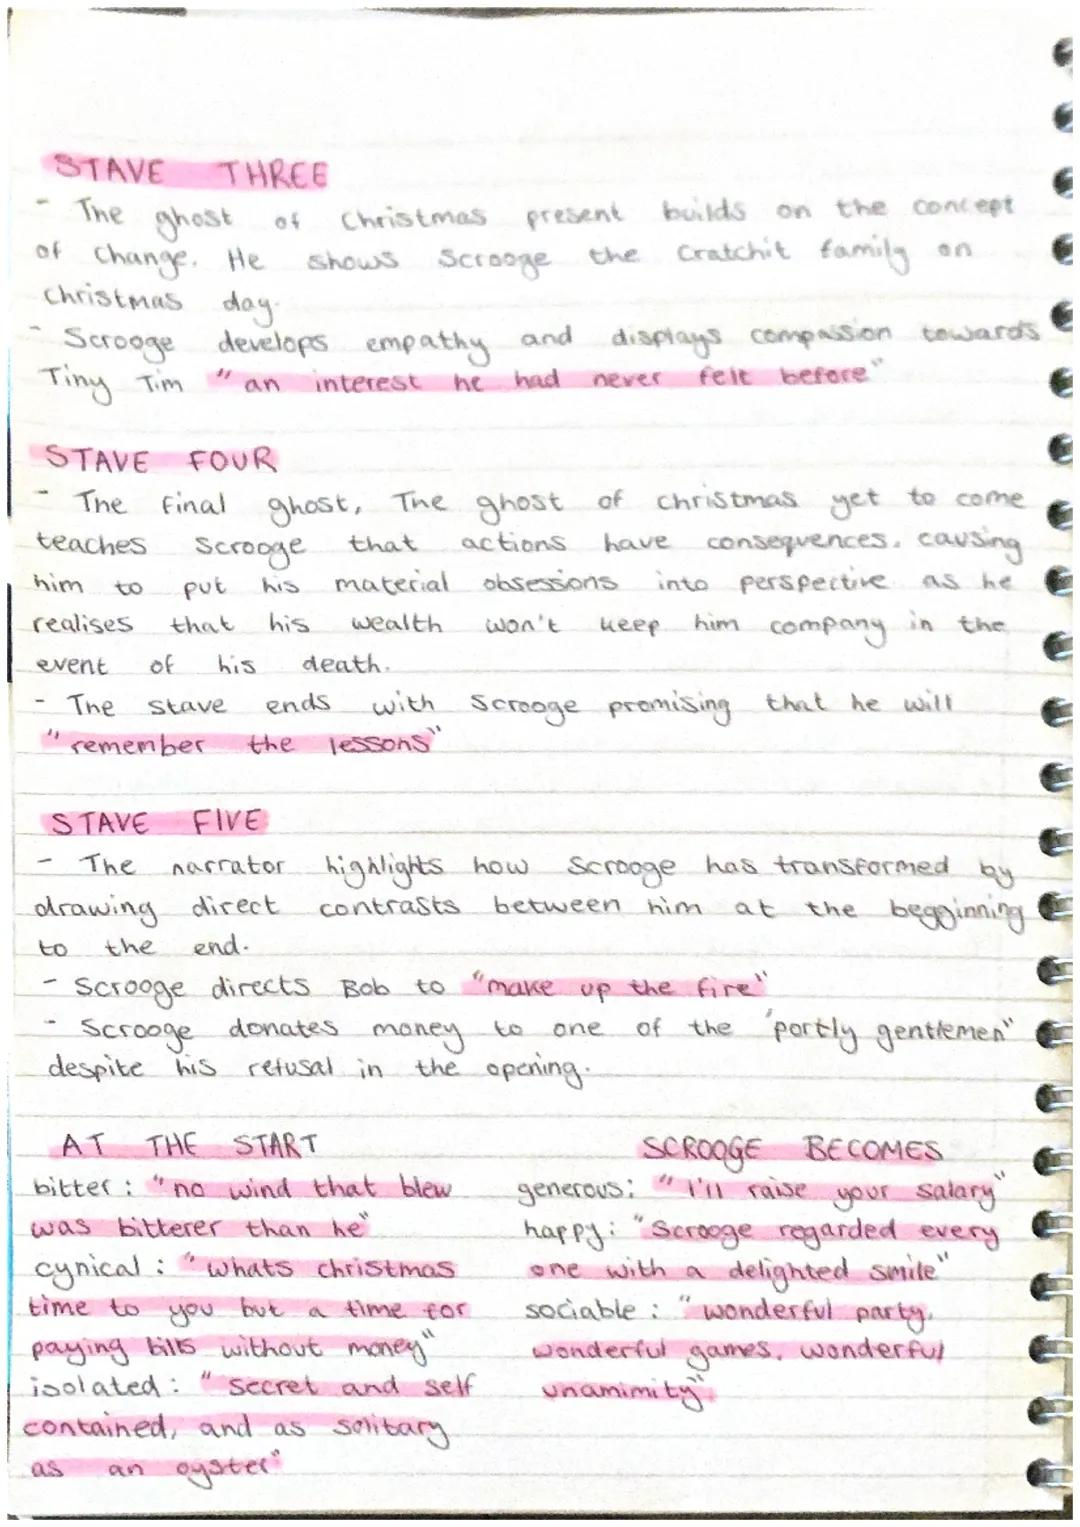 STAVE THREE
- The ghost of Christmas present builds on the concept
of change. He shows Scrooge the Cratchit family on
Christmas day.
- Scrooge develops empathy and displays compassion towards
Tiny Tim "an interest he had never felt before"
STAVE FOUR
- The final ghost, The ghost of christmas yet to come
teaches Scrooge that actions have consequences. causing
him to put his material obsessions into perspective as he
realises that his wealth won't keep him company in the
event of his death.
- The stave ends with Scrooge promising that he will
"remember the lessons"
STAVE FIVE
- The narrator highlights how Scrooge has transformed by
drawing direct contrasts between him at the begginning
to the end.
- Scrooge directs Bob to "make up the fire"
- Scrooge donates money to one of the 'portly gentlemen"
despite his refusal in the opening.
AT THE START
bitter: "no wind that blew
was bitterer than he"
cynical: "whats christmas
time to you but a time for
paying bills without money"
isolated: "secret and self
contained, and as solitary
as an oyster"
SCROOGE BECOMES
generous: "I'll raise your salary"
happy: "Scrooge regarded every
one with a delighted smile"
sociable: "wonderful party,
wonderful games, wonderful
unamimity"